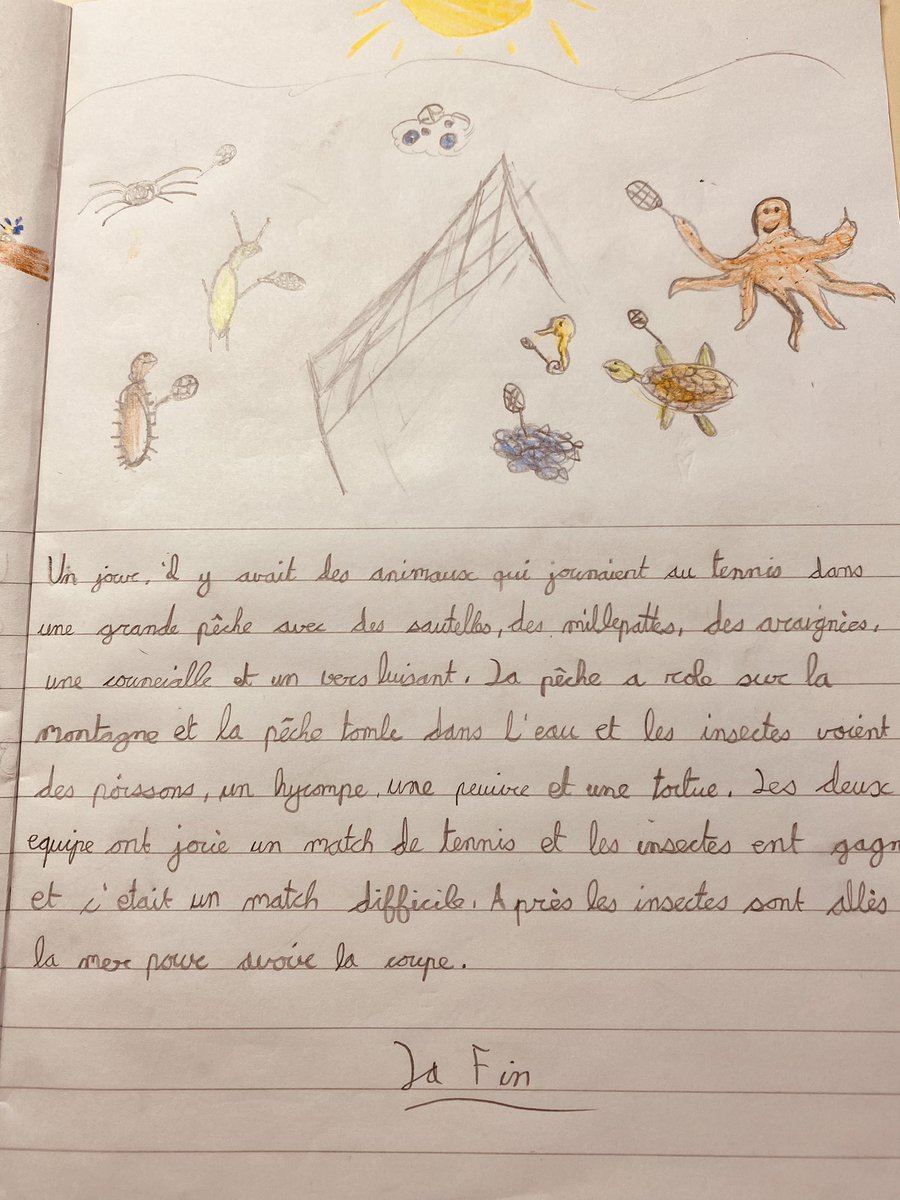 Un jour, il y avait des animaux qui jounaient au tennis dans
une grande pêche avec des sautelles, des millepattes, des araignées,
une counciалle et un vers luisant. La pêche a role sur la
montagne et la pêche tombe dans l'eau et les insectes voient
des poissons, un hycompe, une peuivre et une tortue. Les deux
equipe ont jouè un match de tennis et les insectes ent gagn
et c'était un match difficile. Après les insectes sont allès
la mer pour avoir la coupe.
La Fin